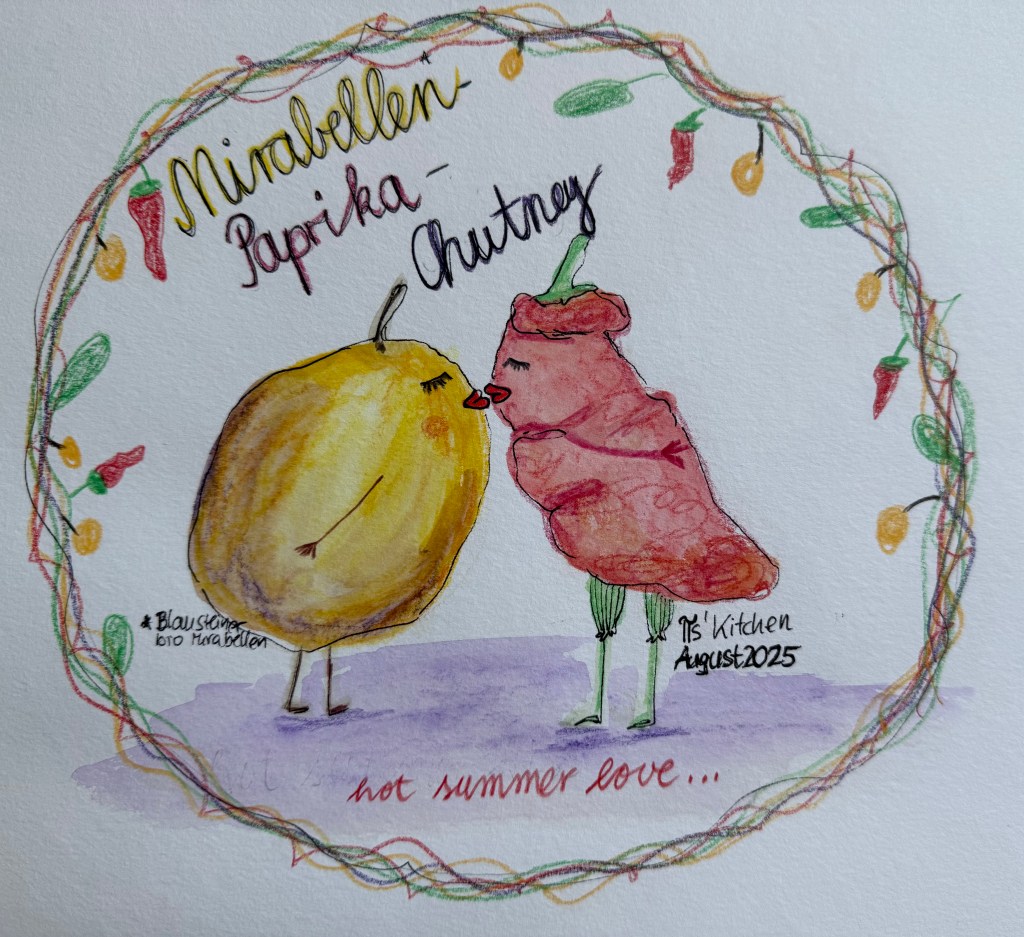 Mirabellen-*
Paprika-
Chutney
* Blausteiner
bio Mirabellen
Kitchen
August 2025
hot summer love...